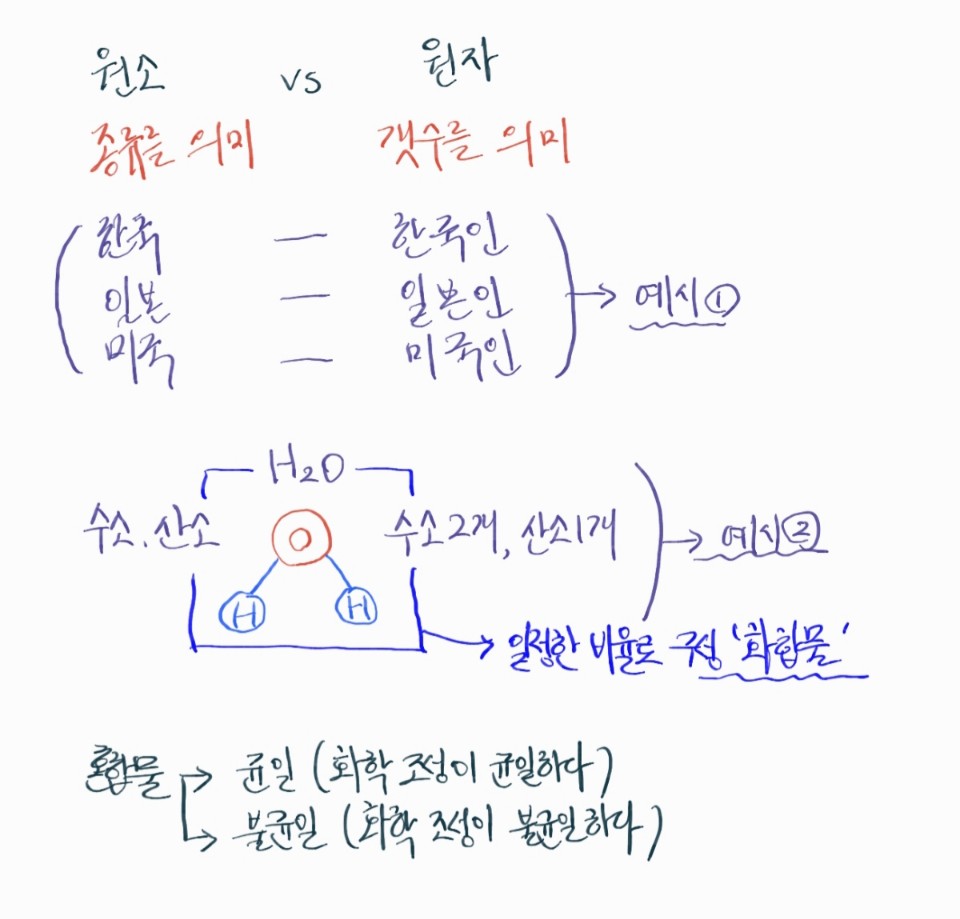 원소 vs 원자
종류를 의미 갯수를 의미
한국 — 한국인
일본 — 일본인 → 예시①
미국 — 미국인
H₂O
수소.산소 O 수소2개, 산소1개 → 예시②
H H
→ 일정한 비율로 구성 '화합물'
혼합물 → 균일 (화학 조성이 균일하다)
→ 불균일 (화학 조성이 불균일하다)